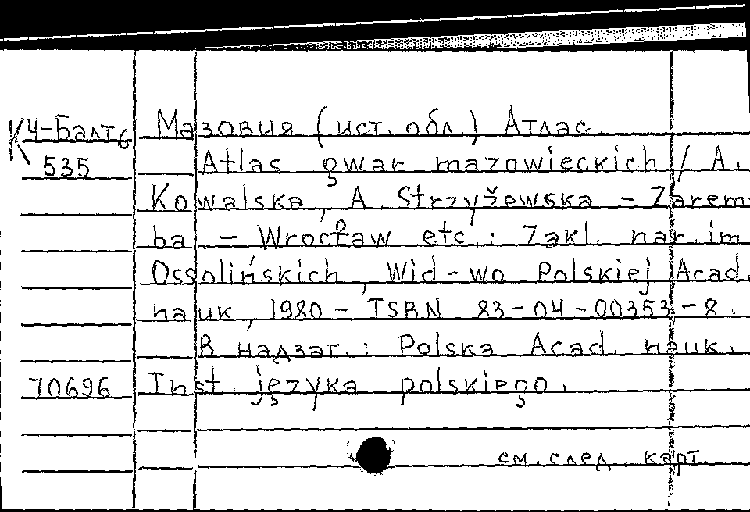 К4-Балт6 Мазовия (ист. обл.) Атлас
535 Atlas gwar mazowieckich / A.
Kowalska, A. Strzyżewska – Zarem-
ba. – Wrocław etc.: Zakl. nar. im.
Ossolińskich, Wid-wo Polskiej Acad.
nauk, 1980 – ISBN 83-04-00353-8.
В надзаг.: Polska Acad. nauk.
70696 Inst. języka polskiego.
см. след. карт